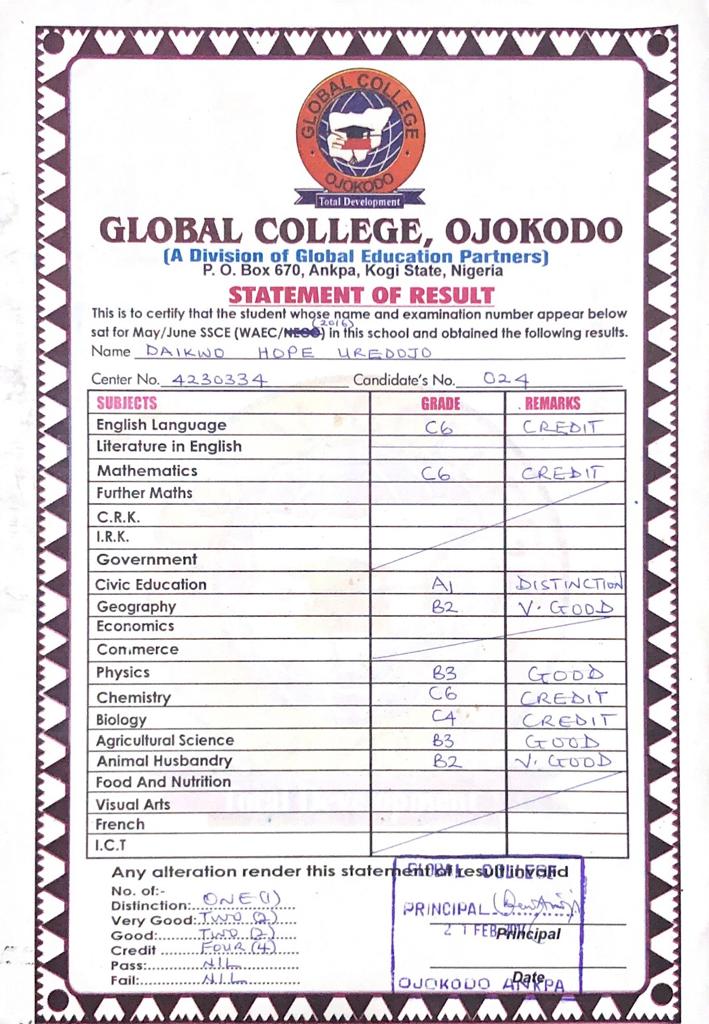 GLOBAL COLLEGE
OJOKODO
Total Development
GLOBAL COLLEGE, OJOKODO
(A Division of Global Education Partners)
P. O. Box 670, Ankpa, Kogi State, Nigeria
STATEMENT OF RESULT
This is to certify that the student whose name and examination number appear below
(2016)
sat for May/June SSCE (WAEC/NECO) in this school and obtained the following results.
Name DAIKWO HOPE UREDOJO
Center No. 4230334 Candidate's No. 024
SUBJECTS GRADE REMARKS
English Language C6 CREDIT
Literature in English
Mathematics C6 CREDIT
Further Maths
C.R.K.
I.R.K.
Government
Civic Education A1 DISTINCTION
Geography B2 V. GOOD
Economics
Commerce
Physics B3 GOOD
Chemistry C6 CREDIT
Biology C4 CREDIT
Agricultural Science B3 GOOD
Animal Husbandry B2 V. GOOD
Food And Nutrition
Visual Arts
French
I.C.T
Any alteration render this statement of result invalid
GLOBAL COLLEGE
No. of:-
Distinction: ONE (1)
Very Good: TWO (2) PRINCIPAL
Good: TWO (2) 21 FEB Principal
Credit FOUR (4)
Pass: NIL
Fail: NIL OJOKODO ANKPA Date